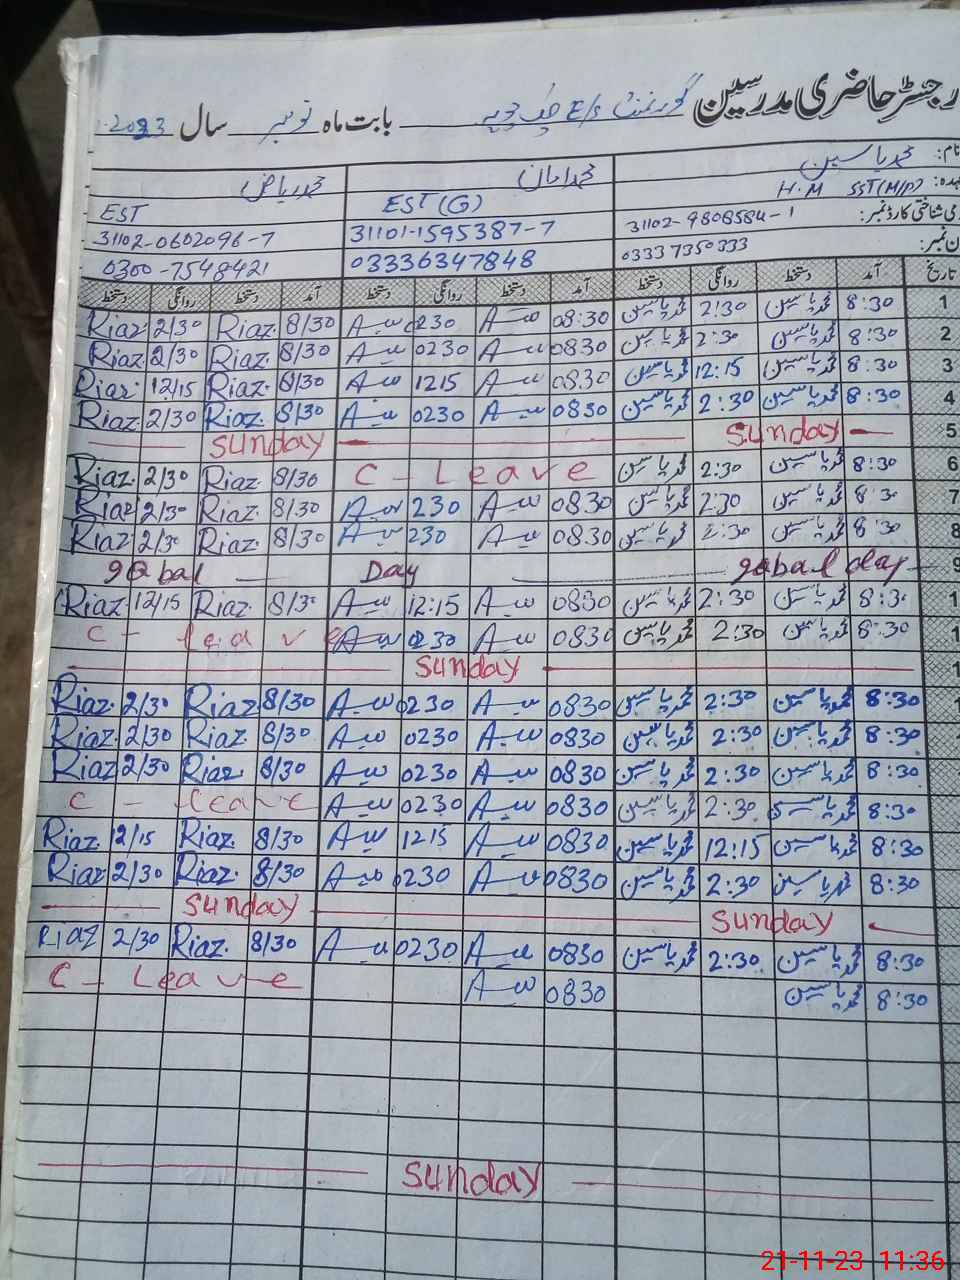 رجسٹر حاضری مدرسین گورنمنٹ E/s چک بابت ماہ نومبر سال 2023
نام: محمد یاسین محمد امان محمد ریاض
عہدہ: H.M SST(M/P) EST (G) EST
قومی شناختی کارڈ نمبر: 31102-9808584-1 31101-1595387-7 31102-0602096-7
فون نمبر: 03337350333 03336347848 0300-7548421
تاریخ آمد دستخط روانگی دستخط آمد دستخط روانگی دستخط آمد دستخط روانگی دستخط
1 8:30 محمد یاسین 2:30 محمد یاسین 08:30 0230 8/30 Riaz. 2/30 Riaz
2 8:30 محمد یاسین 2:30 محمد یاسین 0830 0230 8/30 Riaz. 2/30 Riaz.
3 8:30 محمد یاسین 12:15 محمد یاسین 0830 1215 8/30 Riaz. 12/15 Riaz
4 8:30 محمد یاسین 2:30 محمد یاسین 0830 0230 8/30 Riaz. 2/30 Riaz.
5 Sunday Sunday
6 8:30 محمد یاسین 2:30 محمد یاسین C - Leave 8/30 Riaz. 2/30 Riaz.
7 8:30 محمد یاسین 2:30 محمد یاسین 0830 230 8/30 Riaz. 2/30 Riaz
8 8:30 محمد یاسین 2:30 محمد یاسین 0830 230 8/30 Riaz. 2/30 Riaz
9 iqbal day Day iqbal
1 8:30 محمد یاسین 2:30 محمد یاسین 0830 12:15 8/30 Riaz. 12/15 Riaz.
1 8:30 محمد یاسین 2:30 محمد یاسین 0830 0230 C - leave
1 Sunday
8:30 محمد یاسین 2:30 محمد یاسین 0830 0230 8/30 Riaz 2/30 Riaz.
8:30 محمد یاسین 2:30 محمد یاسین 0830 0230 8/30 Riaz. 2/30 Riaz.
8:30 محمد یاسین 2:30 محمد یاسین 0830 0230 8/30 Riaz 2/30 Riaz
8:30 محمد یاسین 2:30 محمد یاسین 0830 0230 C - leave
8:30 محمد یاسین 12:15 محمد یاسین 0830 1215 8/30 Riaz. 12/15 Riaz
8:30 محمد یاسین 2:30 محمد یاسین 0830 0230 8/30 Riaz. 2/30 Riaz
Sunday Sunday
8:30 محمد یاسین 2:30 محمد یاسین 0830 0230 8/30 Riaz. 2/30 Riaz
8:30 محمد یاسین 0830 C - Leave
Sunday
21-11-23 11:36